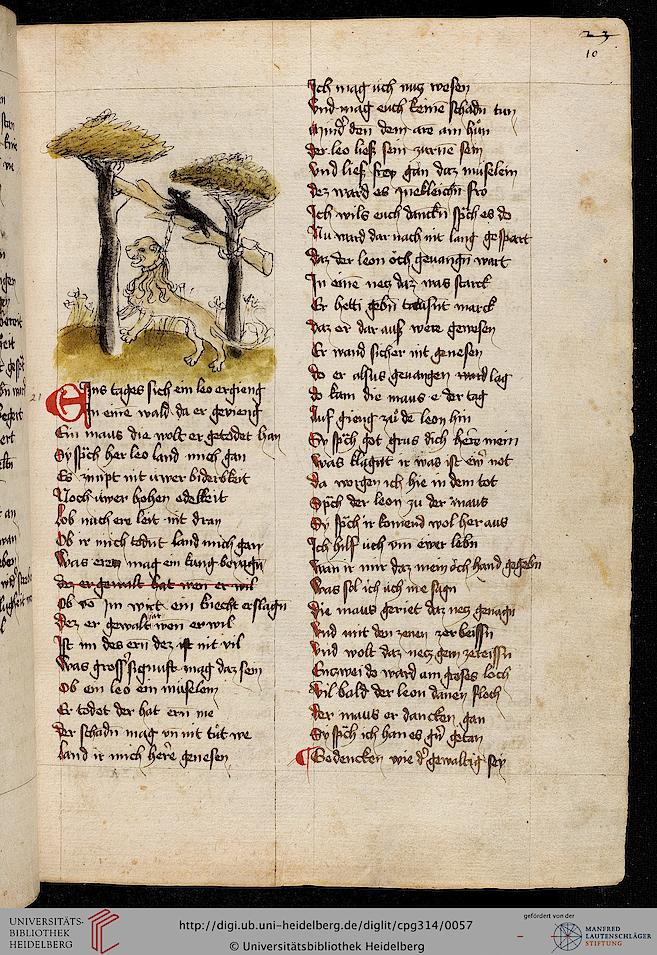 23
10
21
Eins tages sich ein leo ergieng
In eine wald da er gevieng
Ein maus die wolt er getodet han
Sy spch her leo land mich gan
Es zimpt nit uwer biderbkeit
Noch uwer hohen edelkeit
Lob nach ere leit nit dran
Ob ir mich todnt land mich gan
Was eren mag ein kung beiagn
der er gewalt hat wen er wil
Ob vo im wirt ein knecht erslagn
Dez er gewalt hat wen er wil
Ist im des ern dez ist nit vil
Was gross signuft mag daz sein
Ob ein leo ein müselein
Er todet der hat ern nie
Der schadn mag vn nit tüt we
Land ir mich here genesen
Ich mag uch nutz wesen
Vnd mag euch keinē schadn tun
Mindˀ den dem are ain hůn
Der leo liess sein zurne sein
Vnd liess frey gan daz müselein
Dez ward es inekleichn fro
Ich wils euch danckn spch es do
Nu ward dar nach nit lang gespart
Daz der leon öch gevangn wart
In eine netz daz was starck
Er hetti gebn tausnt marck
Daz er dar auf were gewesen
Er wand sicher nit genesen
do er alsus gevangen lag
do kam die maus e der tag
Auf gieng zu de leon hin
Sy spch got grus dich here mein
Was klagnt ir was ist ewr not
da worgen ich hie in dem tot
Spch der leon zu der maus
Sy spch ir komend wol her aus
Ich hilf uch vm ewer lebn
Wan ir mir daz mein öch hand gegebn
Was sol ich uch me sagn
die maus geriet daz netz genagn
Vnd mit den zenen zerbeissn
Vnd wolt daz netz gern zereissn
Enzwei do ward ain groses loch
Vil bald der leon danen floch
Der maus er dancken gan
Sy spch ich han es gn getan
Gedencken wie dˀ gewaltig sey
UNIVERSITÄTS-
BIBLIOTHEK
HEIDELBERG
http://digi.ub.uni-heidelberg.de/diglit/cpg314/0057
© Universitätsbibliothek Heidelberg
gefördert von der
MANFRED
LAUTENSCHLÄGER
STIFTUNG